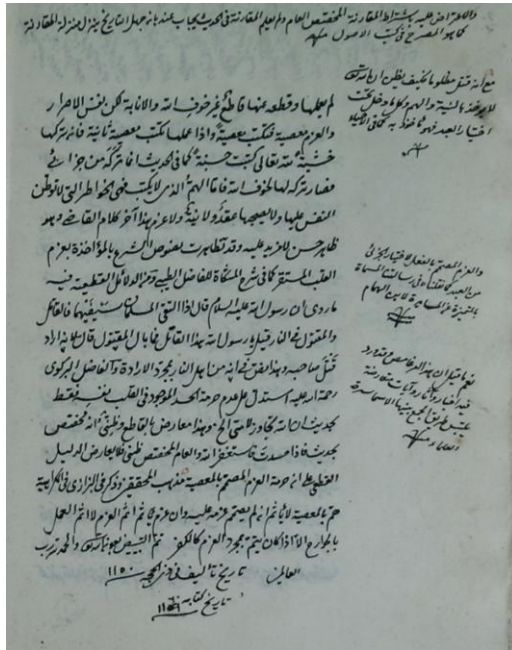 والاعتراض عليه باشتراط المقارنة المخصص العام ولم يعلم المقارنة في الحديث يجاب عنه بانه جهل التاريخ ينزل منزلة المقارنة
كما هو المصرح في كتب الاصول منه
لم يعملها وقطعه عنها قاطع غير خوف الله والانابة لكن نفس الاصرار
والعزم معصية فتكتب معصية واذا عملها تكتب معصية ثانية فان تركها
خشية لله تعالى كتبت حسنة كما في الحديث انما تركه من جرائي
فصار تركه لها لخوف الله فاما الهم الذي لا يكتب فهي الخواطر التي لا توطن
النفس عليها ولا يصحبها عقد ولا نية ولا عزم هذا آخر كلام القاضي وهو
ظاهر حسن لا مزيد عليه وقد تظاهرت نصوص الشرع بالمؤاخذة بعزم
القلب المستقر كما في شرح المشكاة للفاضل الطيبي ومن الدلائل القطعية فيه
ما روى ان رسول الله عليه السلام قال اذا التقى المسلمان بسيفيهما فالقاتل
والمقتول في النار قيل يا رسول الله هذا القاتل فما بال المقتول قال لانه اراد
قتل صاحبه وهذا نص في انه من اهل النار بمجرد الارادة والفاضل البركوي
رحمة الله عليه استدل على عدم حرمة الحسد الموجود في القلب نفسه فقط
بحديث ان الله تجاوز لامتي الخ وهذا معارض بالقاطع وظني انه مخصص
بحديث فاذا حسدت فاستغفر الله والعام المخصص ظني فلا يعارض الدليل
القطعي على ان حرمة العزم المصمم بالمعصية مذهب المحققين وذكر في البزازي في الكراهية
هم بالمعصية لا يأثم ان لم يصمم عزمه عليه وان عزم يأثم اثم العزم لا اثم العمل
بالجوارح الا اذا كان يتم بمجرد العزم كالكفر تم التبييض بعون الله تعالى والحمد لله رب
العالمين
تاريخ تأليف في ذي الحجة ١١٥٠
تاريخ كتابه
مع انه قتل مظلوما فكيف يظن ان الله تعالى
لا يؤاخذه بالنية والهم وكلما دخل تحت
اختيار العبد فهو مأخوذ به كما في الاحياء
والعزم المصمم بالفعل الاختياري الجزئي
من العبد
عن المسايرة لابن الهمام
نعم ما قيل ان هذا المقام قد ورد
فيه اخبار وآثار وآيات متعارضة
يلتبس طريق الجمع بينها الا على سماسرة
العلماء منه